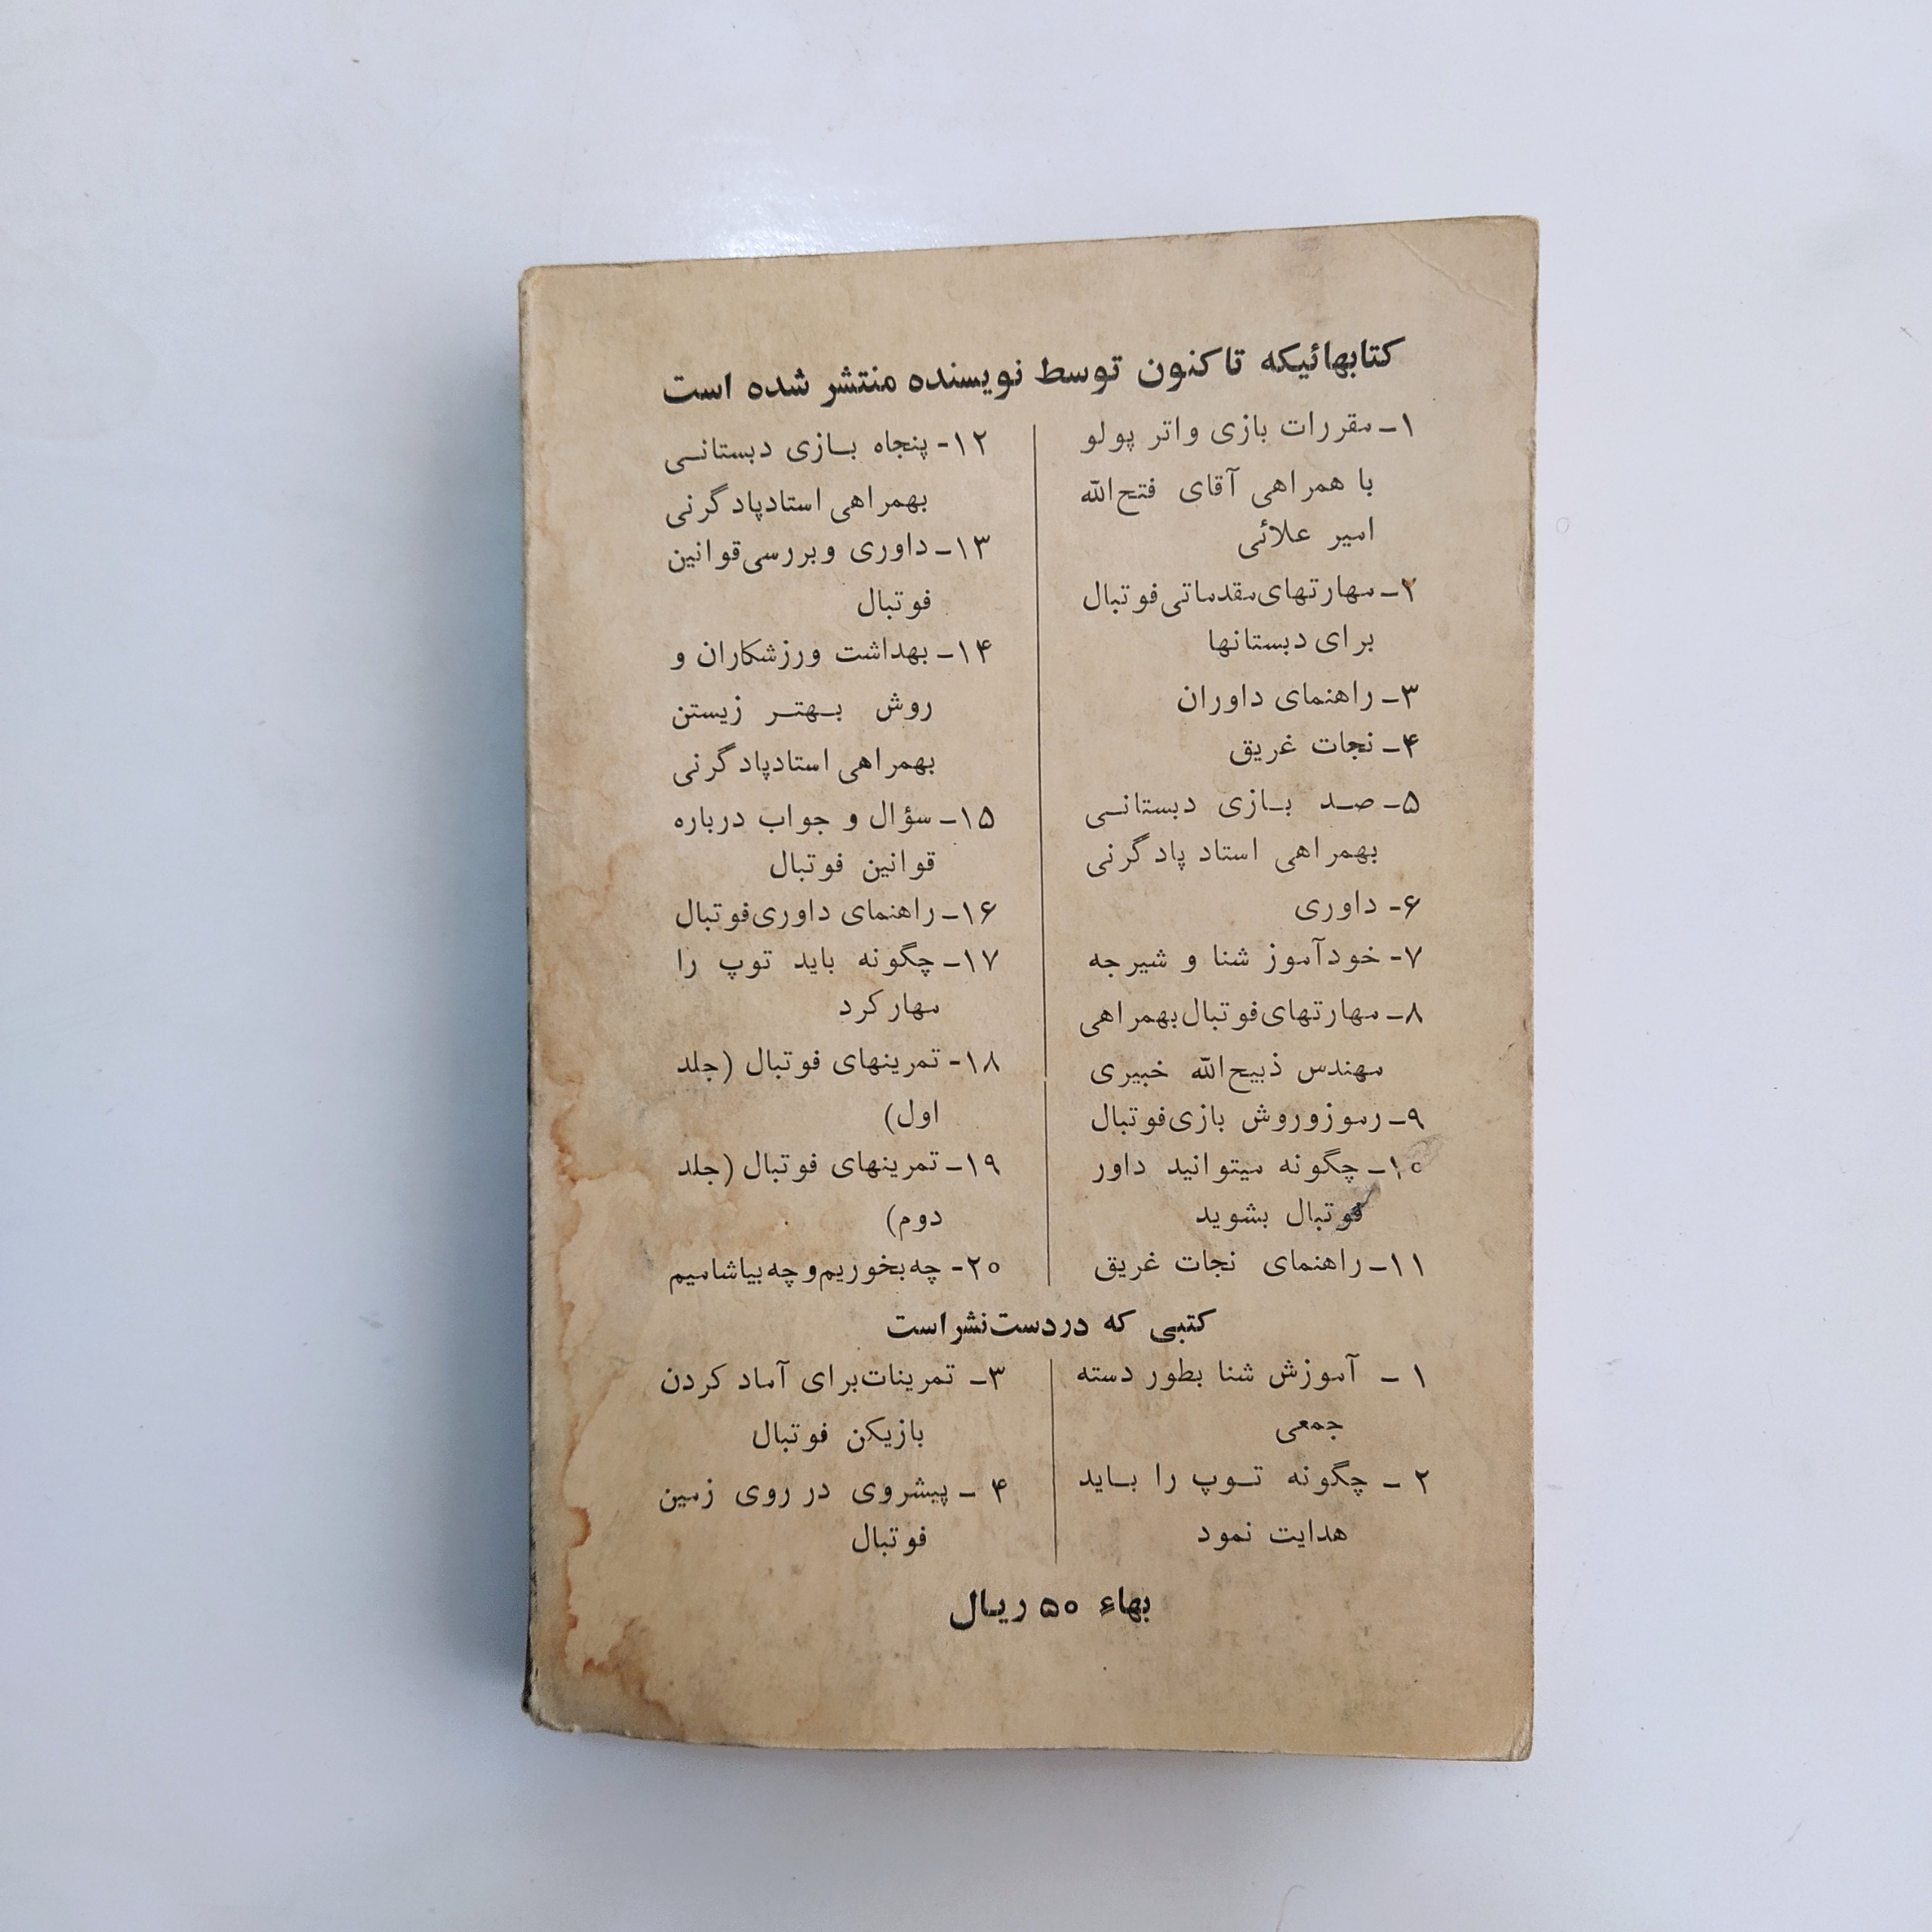 کتابهائیکه تاکنون توسط نویسنده منتشر شده است
۱ـ مقررات بازی واتر پولو
با همراهی آقای فتح‌الله
امیر علائی
۲ـ مهارتهای مقدماتی فوتبال
برای دبستانها
۳ـ راهنمای داوران
۴ـ نجات غریق
۵ـ صـد بـازی دبستانـی
بهمراهی استاد پادگرنی
۶- داوری
۷- خودآموز شنا و شیرجه
۸ـ مهارتهای فوتبال بهمراهی
مهندس ذبیح‌الله خبیری
۹ـ رموز و روش بازی فوتبال
۱۰ـ چگونه میتوانید داور
فوتبال بشوید
۱۱ـ راهنمای نجات غریق
۱۲- پنجاه بـازی دبستانـی
بهمراهی استاد پادگرنی
۱۳ـ داوری و بررسی قوانین
فوتبال
۱۴ـ بهداشت ورزشکاران و
روش بـهتـر زیستن
بهمراهی استاد پادگرنی
۱۵ـ سؤال و جواب درباره
قوانین فوتبال
۱۶ـ راهنمای داوری فوتبال
۱۷ـ چگونه باید توپ را
مهار کرد
۱۸- تمرینهای فوتبال (جلد
اول)
۱۹ـ تمرینهای فوتبال (جلد
دوم)
۲۰- چه بخوریم و چه بیاشامیم
کتبی که در دست نشر است
۱ ـ آموزش شنا بطور دسته
جمعی
۲ ـ چگونه تـوپ را بـاید
هدایت نمود
۳ـ تمرینات برای آماد کردن
بازیکن فوتبال
۴ ـ پیشروی در روی زمین
فوتبال
بهاء ۵۰ ریال